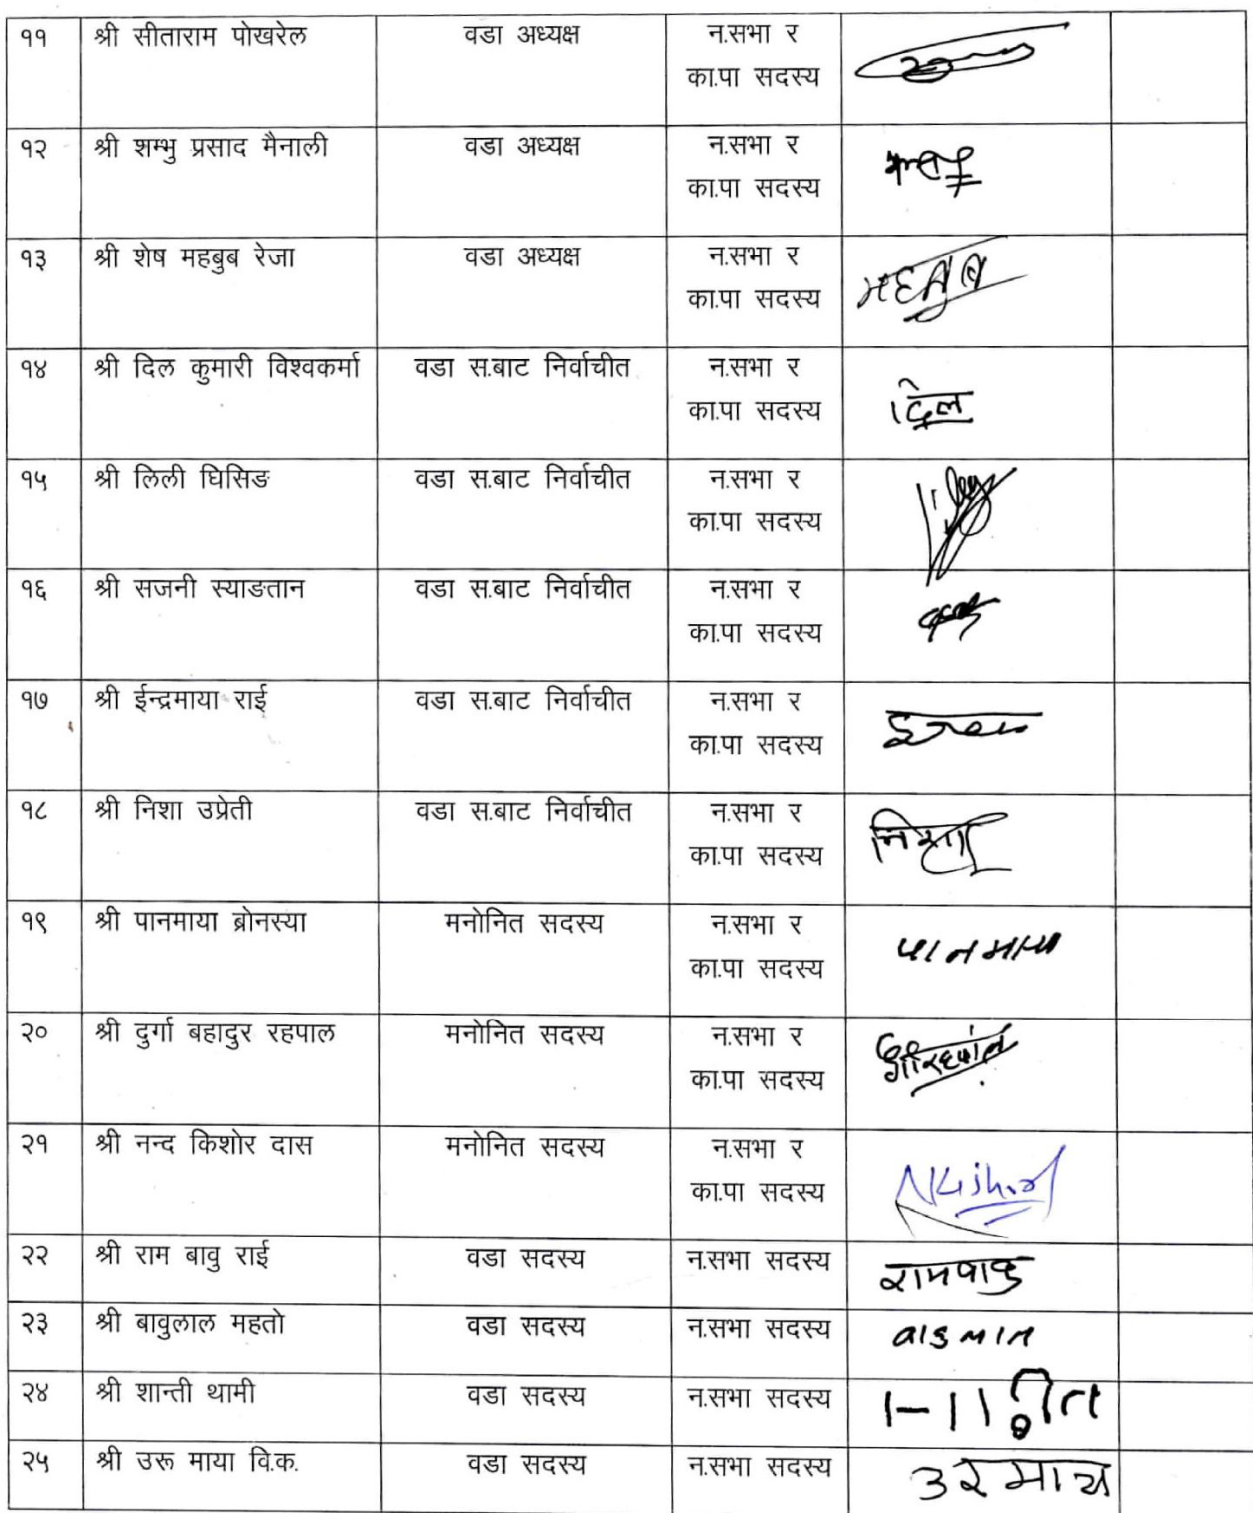 ११ श्री सीताराम पोखरेल वडा अध्यक्ष न.सभा र
का.पा सदस्य
१२ श्री शम्भु प्रसाद मैनाली वडा अध्यक्ष न.सभा र
का.पा सदस्य
१३ श्री शेष महबुब रेजा वडा अध्यक्ष न.सभा र
का.पा सदस्य महबुब
१४ श्री दिल कुमारी विश्वकर्मा वडा स.बाट निर्वाचीत न.सभा र
का.पा सदस्य दिल
१५ श्री लिली घिसिङ वडा स.बाट निर्वाचीत न.सभा र
का.पा सदस्य
१६ श्री सजनी स्याङतान वडा स.बाट निर्वाचीत न.सभा र
का.पा सदस्य
१७ श्री ईन्द्रमाया राई वडा स.बाट निर्वाचीत न.सभा र
का.पा सदस्य
१८ श्री निशा उप्रेती वडा स.बाट निर्वाचीत न.सभा र
का.पा सदस्य निशा
१९ श्री पानमाया ब्रोनस्या मनोनित सदस्य न.सभा र
का.पा सदस्य पानमाया
२० श्री दुर्गा बहादुर रहपाल मनोनित सदस्य न.सभा र
का.पा सदस्य
२१ श्री नन्द किशोर दास मनोनित सदस्य न.सभा र
का.पा सदस्य NKishor
२२ श्री राम बावु राई वडा सदस्य न.सभा सदस्य रामवावु
२३ श्री बावुलाल महतो वडा सदस्य न.सभा सदस्य
२४ श्री शान्ती थामी वडा सदस्य न.सभा सदस्य
२५ श्री उरू माया वि.क. वडा सदस्य न.सभा सदस्य उरमाय